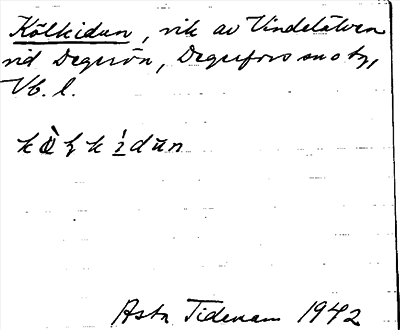 Kölkidun, vik av Vindelälven
vid Degerön, Degerfors sn o tg,
Vb. l.
Asta Tidenam 1942